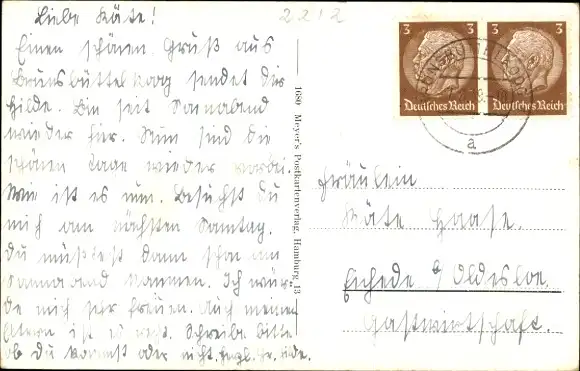 Liebe Käte!
2212
Einen schönen Gruß aus
Brunsbüttelkoog sendet Dir
Hilde. Bin seit Sonnabend
wieder hier. Nun sind die
schönen Tage wieder vorbei.
Wie ist es nun. Besuchst Du
mich am nächsten Sonntag.
Du müßtest dann schon am
Sonnabend kommen. Ich wür-
de mich sehr freuen. Auch meinen
Eltern ist es recht. Schreibe bitte
ob Du kommst oder nicht. Hilde.
1680 Meyer's Postkartenverlag, Hamburg 13
3 3
Deutsches Reich Deutsches Reich
a
Fräulein
Käte Haase.
Eichede b/ Oldesloe.
Gastwirtschaft.